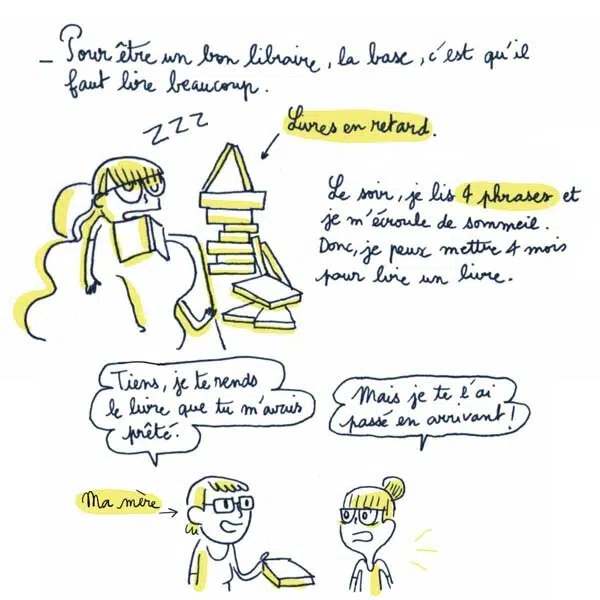 _ Pour être un bon libraire, la base, c'est qu'il
faut lire beaucoup.
ZZZ
Livres en retard.
Le soir, je lis 4 phrases et
je m'écroule de sommeil.
Donc, je peux mettre 4 mois
pour lire un livre.
Tiens, je te rends
le livre que tu m'avais
prêté.
Mais je te l'ai
passé en arrivant !
Ma mère